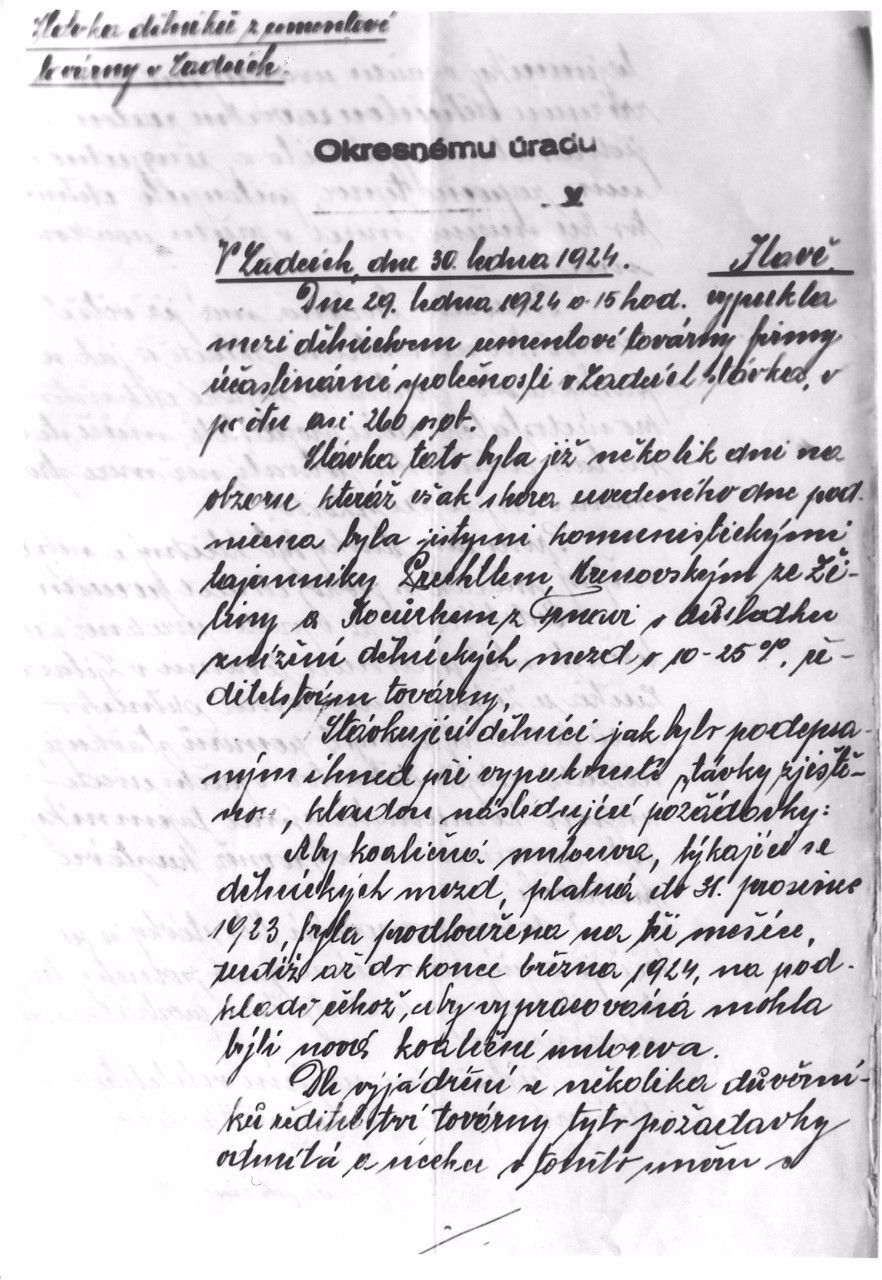 Stávka dělníků z cementové
továrny v Ladcích.
Okresnému úradu
v
V Ladcích, dne 30. ledna 1924. Ilavě.
Dne 29. ledna 1924 o 15 hod. vypukla
mezi dělnictvem cementové továrny firmy
účastinárné společnosti v Ladcích stávka, v
počtu asi 260 osob.
Stávka tato byla již několik dní na
obzoru, kteráž však shora uvedeného dne pod-
nícena byla jistými komunistickými
tajemníky ze Ži-
liny a z Trnavi v důsledku
znížení dělnických mezd o 10-25 %, ře-
ditelstvím továrny.
Stávkující dělníci jak bylo podepsa-
ným ihned při vypuknutí stávky zjiště-
no, kladou následující požadavky:
Aby koaličná smlouva, týkající se
dělnických mezd, platná do 31. prosince
1923, byla prodloužena na tři měsíce,
tudíž až do konce března 1924, na pod-
kladě čehož, aby vypracovaná mohla
býti nová koaličné smlouva.
Dle vyjádření se několika důvěrní-
ků ředitelství továrny tyto požadavky
odmítá a nechce v tomto směru s